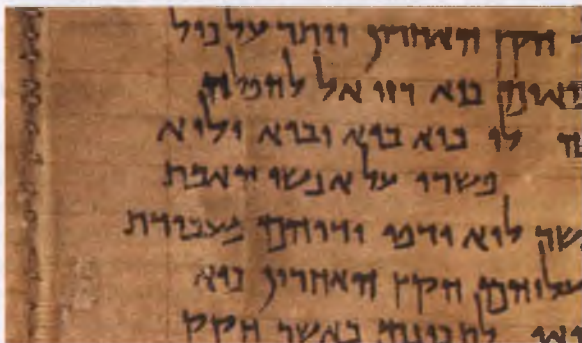 הקץ האחרון ויתר על כול
כיא רזי אל להפלה
לו כיא בוא יבוא ולוא
פשרו על אנשי האמת
לוא ירפו ידיהם מעבודת
עליהם הקץ האחרון כיא
לתכונם כאשר חקק